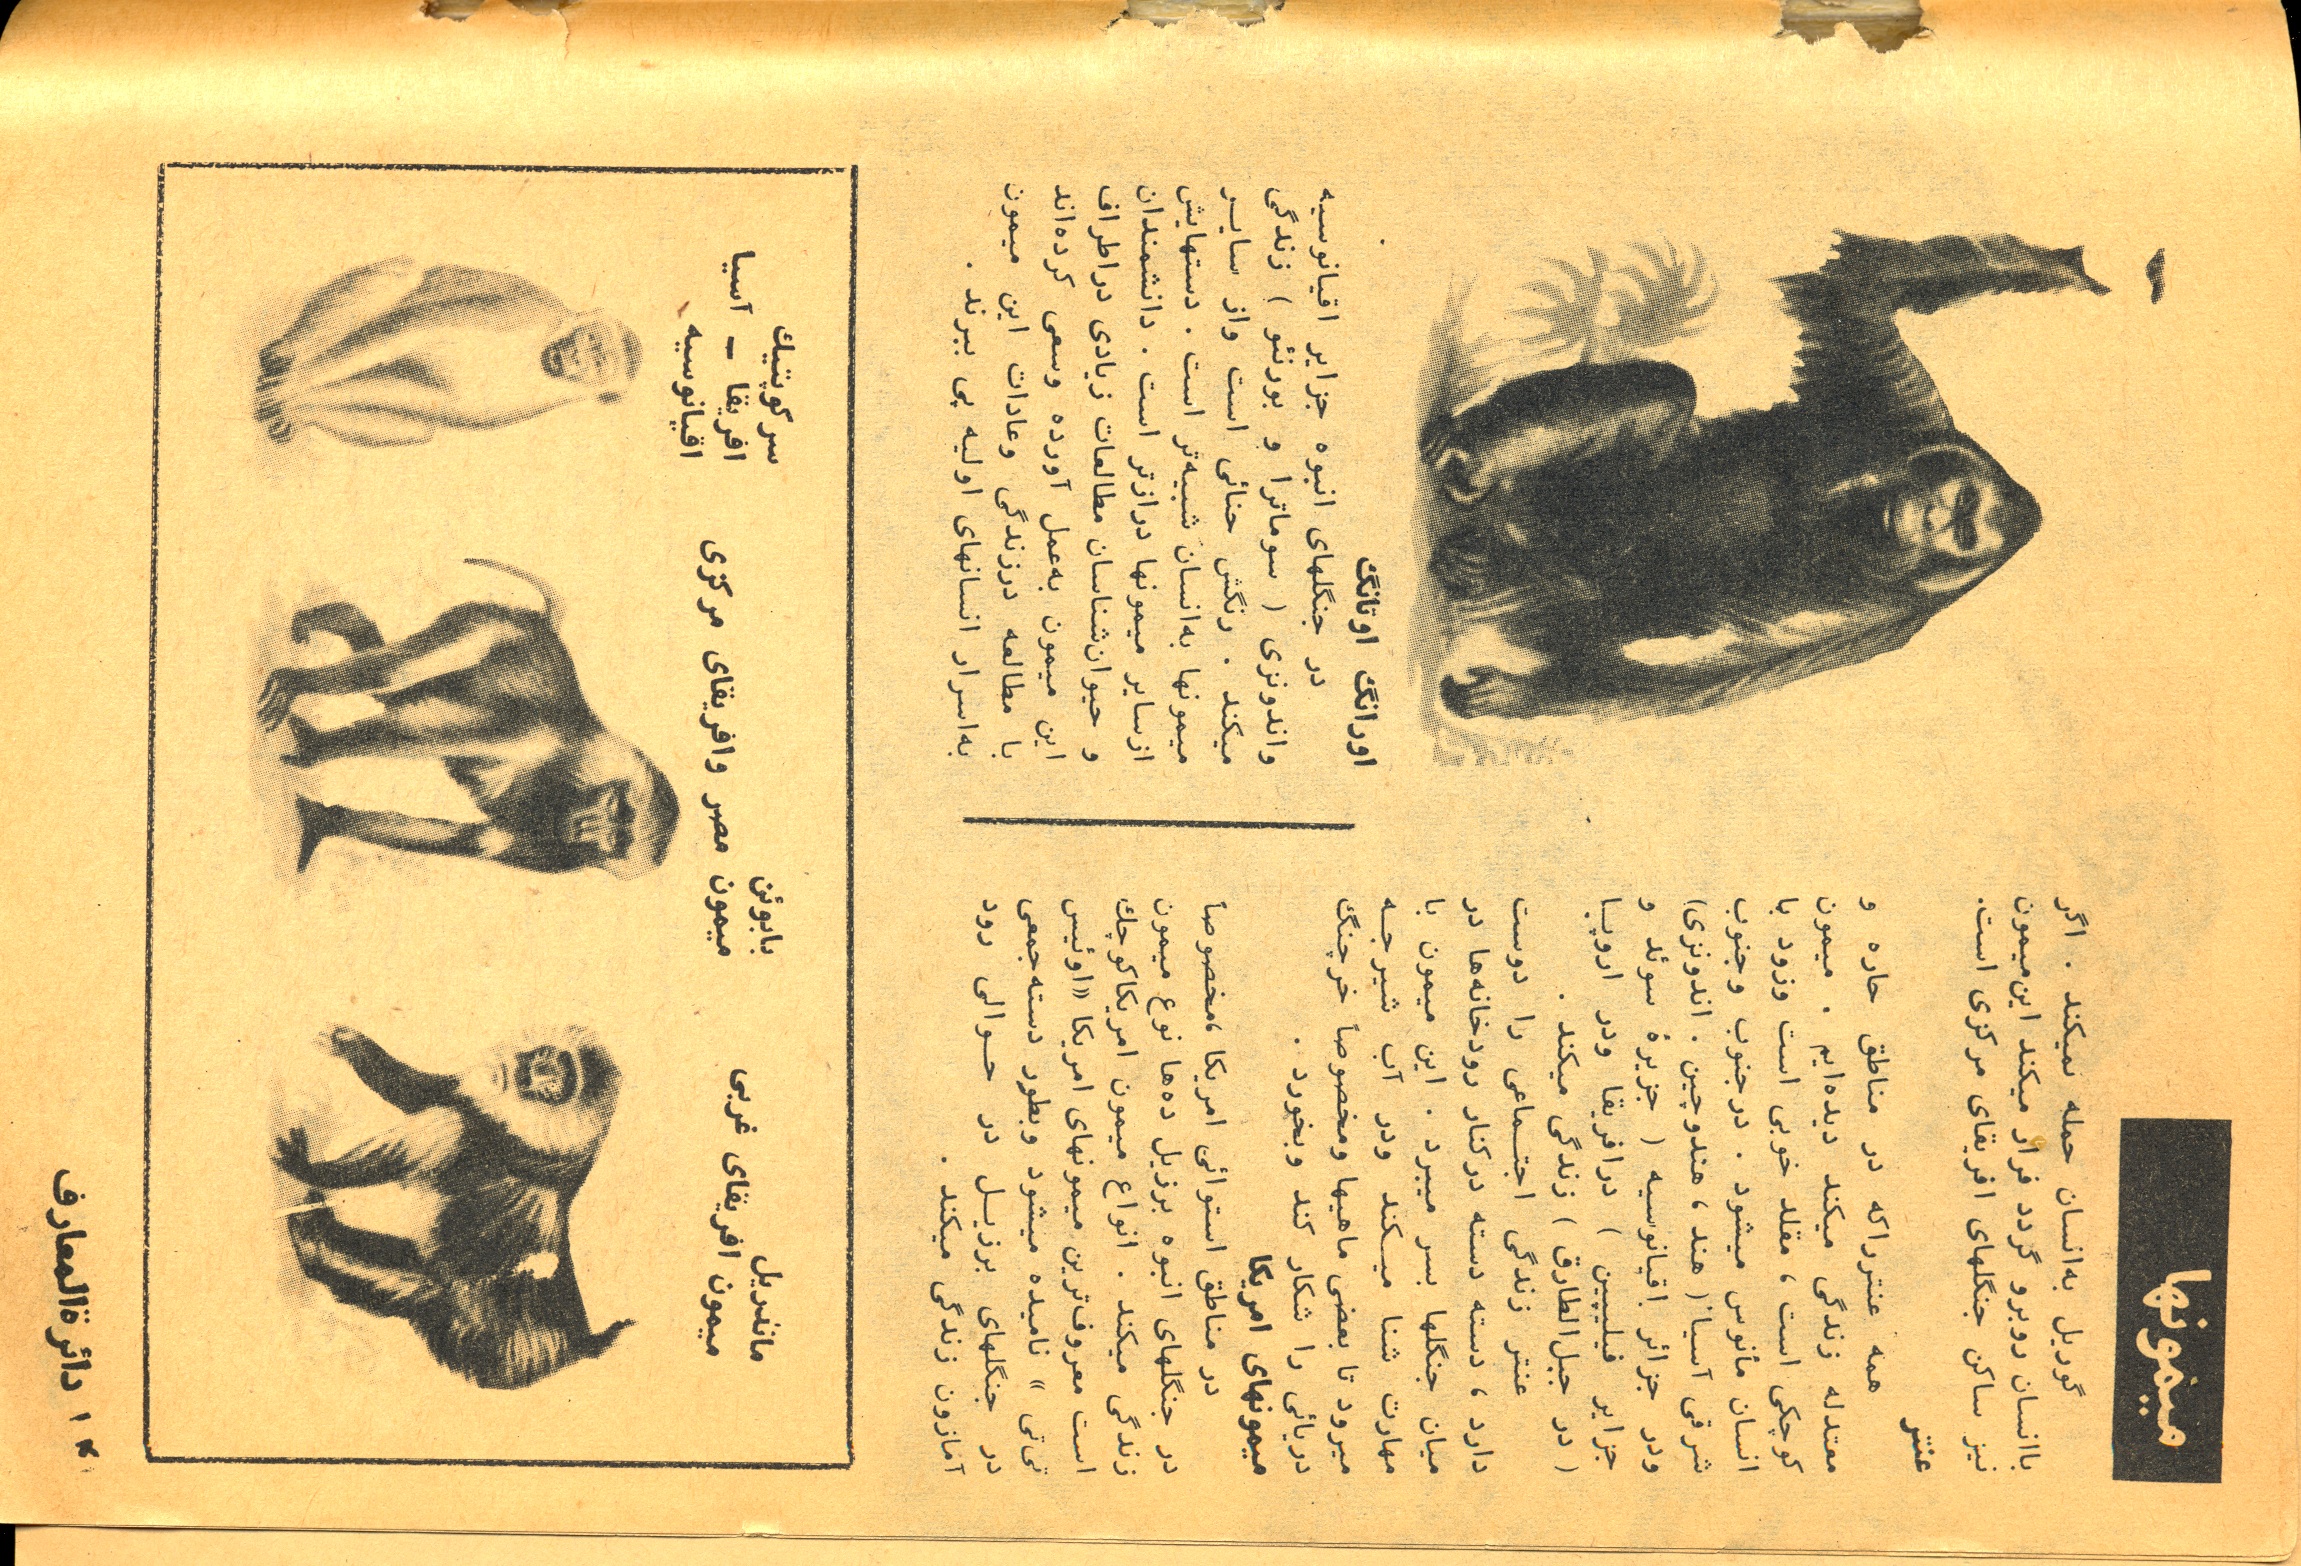 میمونها
گوریل به‌انسان حمله نمیکند . اگر
باانسان روبرو گردد فرار میکند این‌میمون
نیز ساکن جنگلهای افریقای مرکزی است.
عنتر
همه عنتر راکه در مناطق حاره و
معتدله زندگی میکند دیده‌ایم . میمون
کوچکی است ، مقلد خوبی است وزود با
انسان مأنوس میشود . درجنوب وجنوب
شرقی آسیا ( هند ، هندوچین . اندونزی)
ودر جزائر اقیانوسیه ( جزیرهٔ سوئد و
جزایر فیلیپین ) درافریقا ودر اروپا
( در جبل‌الطارق ) زندگی میکند .
عنتر زندگی اجتماعی را دوست
دارد ، دسته دسته درکنار رودخانه‌ها در
میان جنگلها بسر میبرد . این میمون با
مهارت شنا میکند ودر آب شیرجه
میرود تا بعضی ماهیها ومخصوصاً خرچنگ
دریائی را شکار کند وبخورد .
میمونهای امریکا
در مناطق استوائی امریکا ،مخصوصاً
در جنگلهای انبوه برزیل ده‌ها نوع میمون
زندگی میکند . انواع میمون امریکاکوچك
است معروف‌ترین میمونهای امریکا «اوئیس
تی‌تی » نامیده میشود وبطور دسته‌جمعی
در جنگلهای برزیل در حوالی رود
آمازون زندگی میکند .
اورانگ اوتانگ
در جنگلهای انبوه جزایر اقیانوسیه
واندونزی ( سوماترا و بورنئو ) زندگی
میکند . رنگش حنائی است واز سایر
میمونها به‌انسان شبیه‌تر است . دستهایش
ازسایر میمونها درازتر است . دانشمندان
و حیوان‌شناسان مطالعات زیادی دراطراف
این میمون به‌عمل آورده وسعی کرده‌اند
با مطالعه درزندگی وعادات این میمون
به‌اسرار انسانهای اولیه پی ببرند .
ماندریل
میمون افریقای غربی
بابوئن
میمون مصر وافریقای مرکزی
سرکوپتیك
افریقا - آسیا
اقیانوسیه
دائرةالمعارف